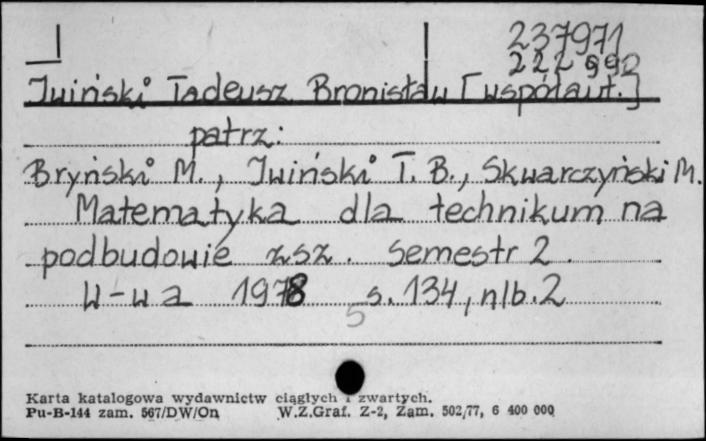 237971
222992
Iwiński Tadeusz Bronisław [współaut.]
patrz:
Bryński M., Iwiński T. B., Skwarczyński M.
Matematyka dla technikum na
podbudowie zsz. Semestr 2.
W-wa 1978 s. 134, nlb. 2
5
Karta katalogowa wydawnictw ciągłych i zwartych.
Pu-B-144 zam. 567/DW/On W.Z.Graf. Z-2, Zam. 502/77, 6 400 000